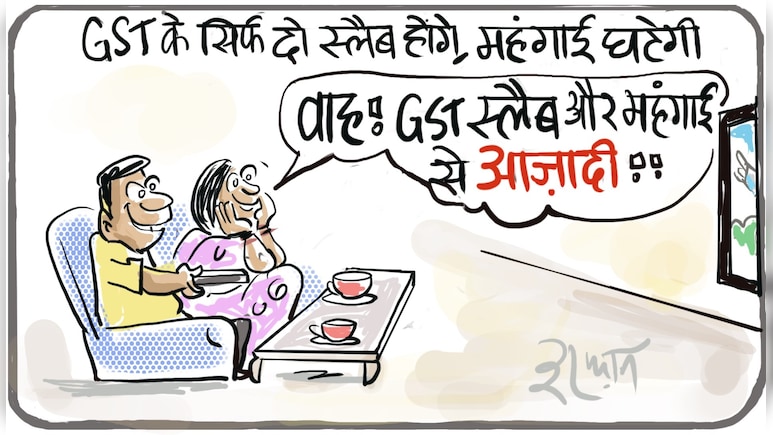 GST के सिर्फ दो स्लैब होंगे, महंगाई घटेगी
वाह! GST स्लैब और महंगाई
से आज़ादी!!
इरफ़ान